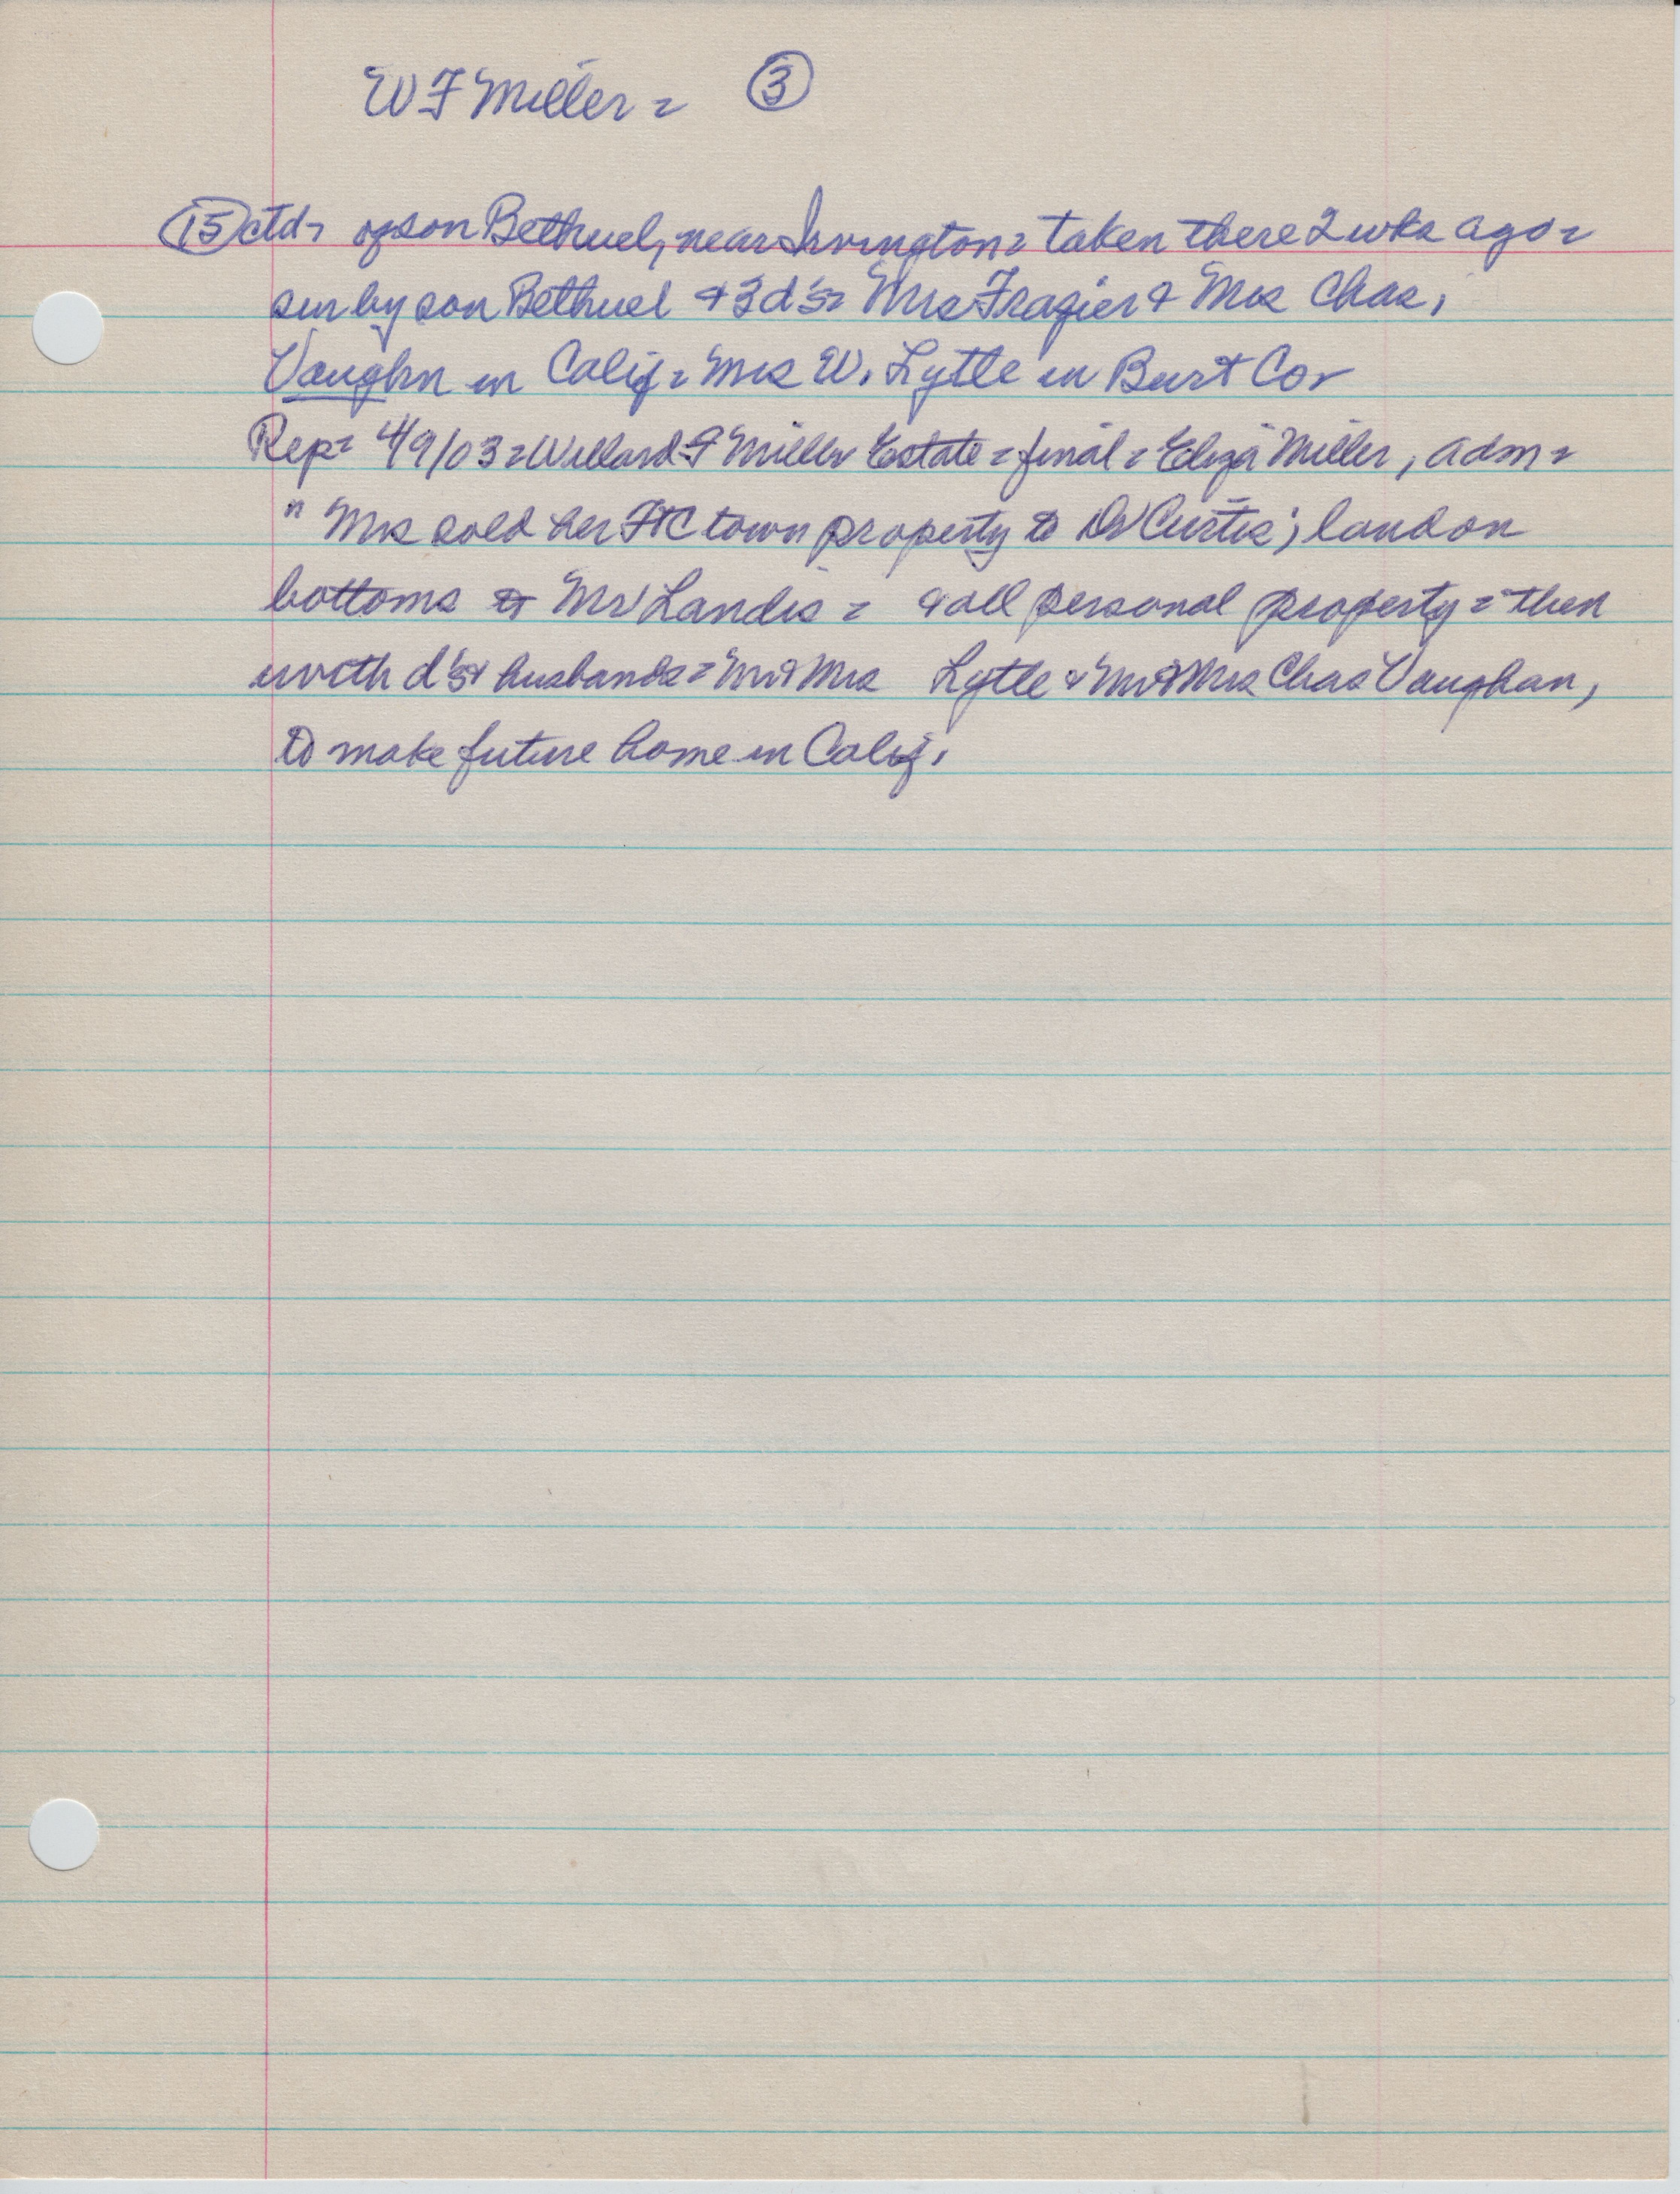 W F Miller = 3
15 ctd = of son Bethuel, near Irvington = taken there 2 wks ago =
sur by son Bethuel & 3 d's = Mrs Frazier & Mrs Chas.
Vaughn in Calif = Mrs W. Lytle in Burt Co =
Rep = 4/9/03 = Willard F Miller Estate = final = Eliza Miller, adm =
" Mrs sold her FtC town property to Dr Curtis; land on
bottoms to Mr Landis = & all personal property = then
with d's & husbands = Mr & Mrs Lytle & Mr & Mrs Chas Vaughan,
to make future home in Calif.